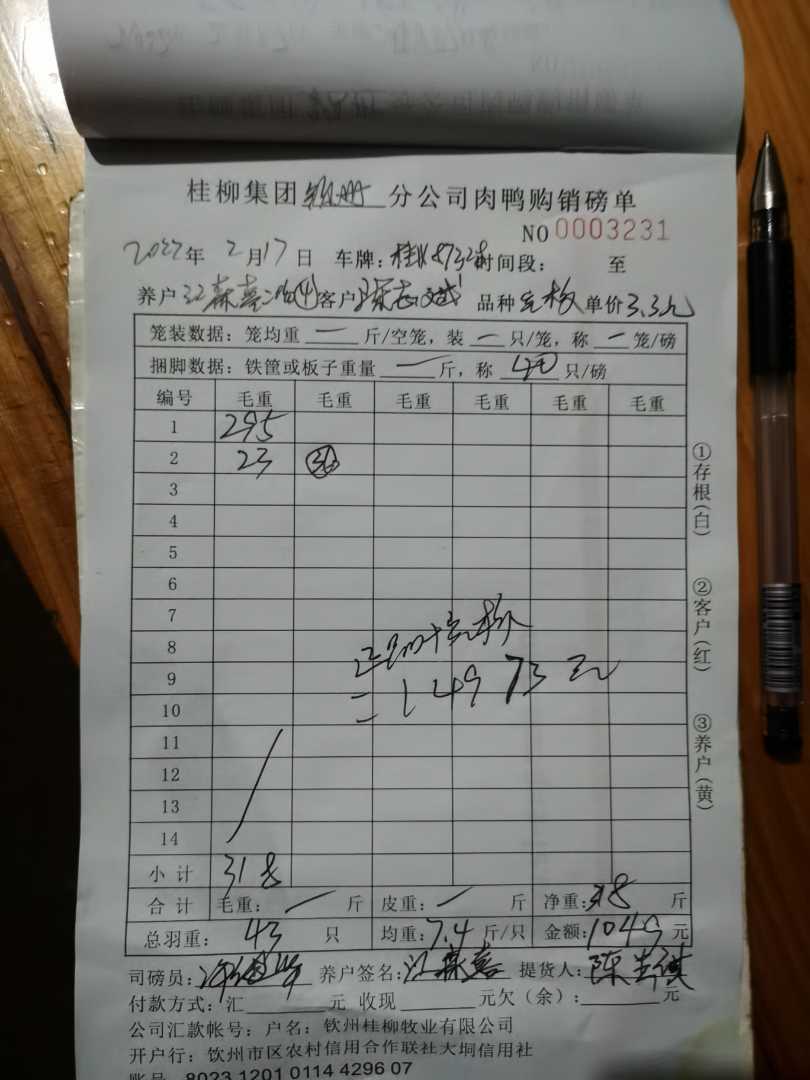 桂柳集团 钦州 分公司肉鸭购销磅单
NO 0003231
2022年 2月17日 车牌: 时间段: 至
养户 江森喜 客户 陈志斌 品种 单价 3.3元
笼装数据: 笼均重 一 斤/空笼, 装 一 只/笼, 称 一 笼/磅
捆脚数据: 铁筐或板子重量 一 斤, 称 40 只/磅
编号 毛重 毛重 毛重 毛重 毛重 毛重
1 295
2 23 ③
3
4
5
6
7
8
9
10
= 14973元
11
12
13
14
小计 318
合计 毛重: 一 斤 皮重: 一 斤 净重: 318 斤
总羽重: 43 只 均重: 7.4 斤/只 金额: 1049 元
司磅员: 养户签名: 江森喜 提货人: 陈
付款方式: 汇 元 收现 元欠(余): 元
公司汇款帐号: 户名: 钦州桂柳牧业有限公司
开户行: 饮州市区农村信用合作联社大垌信用社
账号 8023 1201 0114 4296 07
①存根(白)
②客户(红)
③养户(黄)